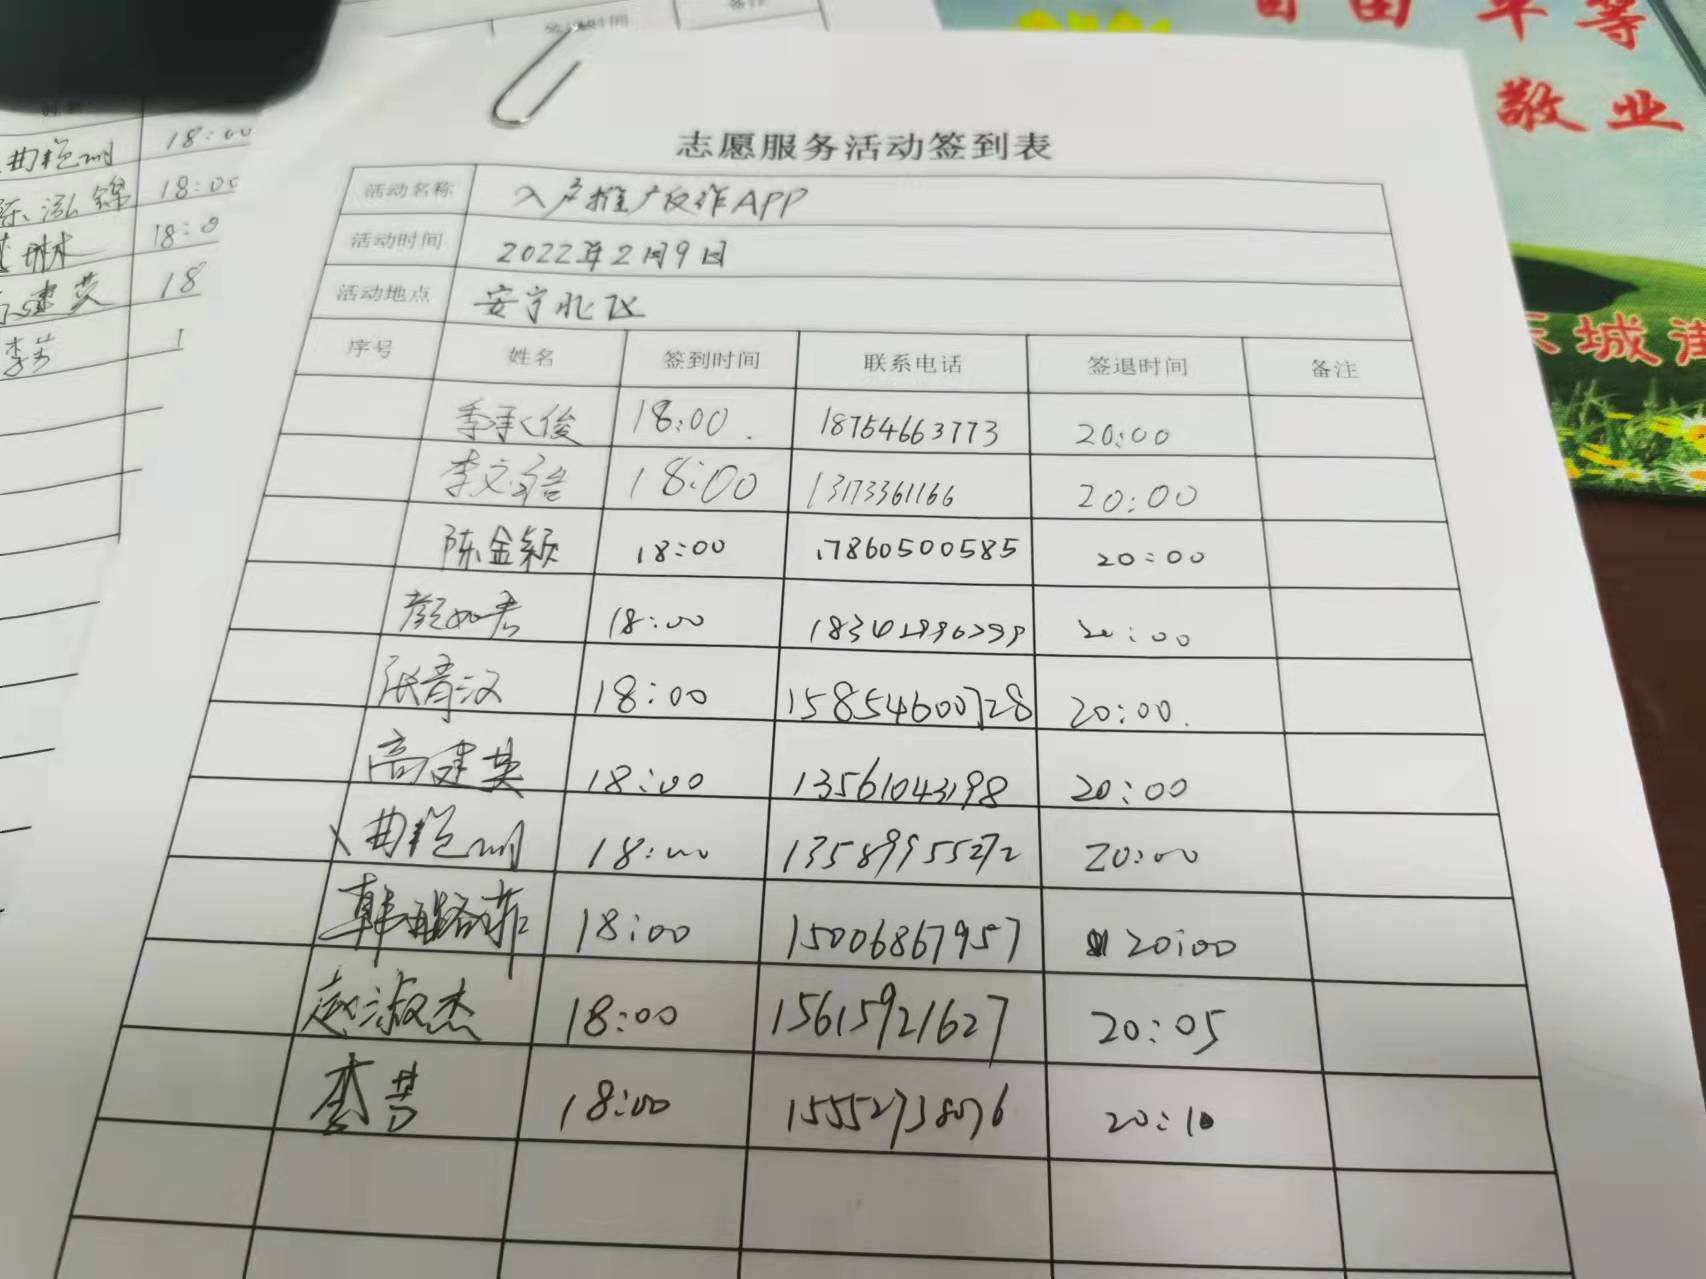 备注
自由 平等
敬业
东城街
曲艳明 18:00
陈泓锦 18:00
琳 18:0
高建英 18
李
志愿服务活动签到表
活动名称 入户推广反诈APP
活动时间 2022年2月9日
活动地点 安宁北区
序号 姓名 签到时间 联系电话 签退时间 备注
季承俊 18:00 18754663773 20:00
李文浩 18:00 13173361166 20:00
陈金颖 18:00 17860500585 20:00
颜如君 18:00 20:00
张育汉 18:00 15854600728 20:00
高建英 18:00 13561043198 20:00
曲艳明 18:00 13589955272 20:00
韩 菲 18:00 15006867957 20:00
赵淑杰 18:00 15615921627 20:05
18:00 15552738076 20:10